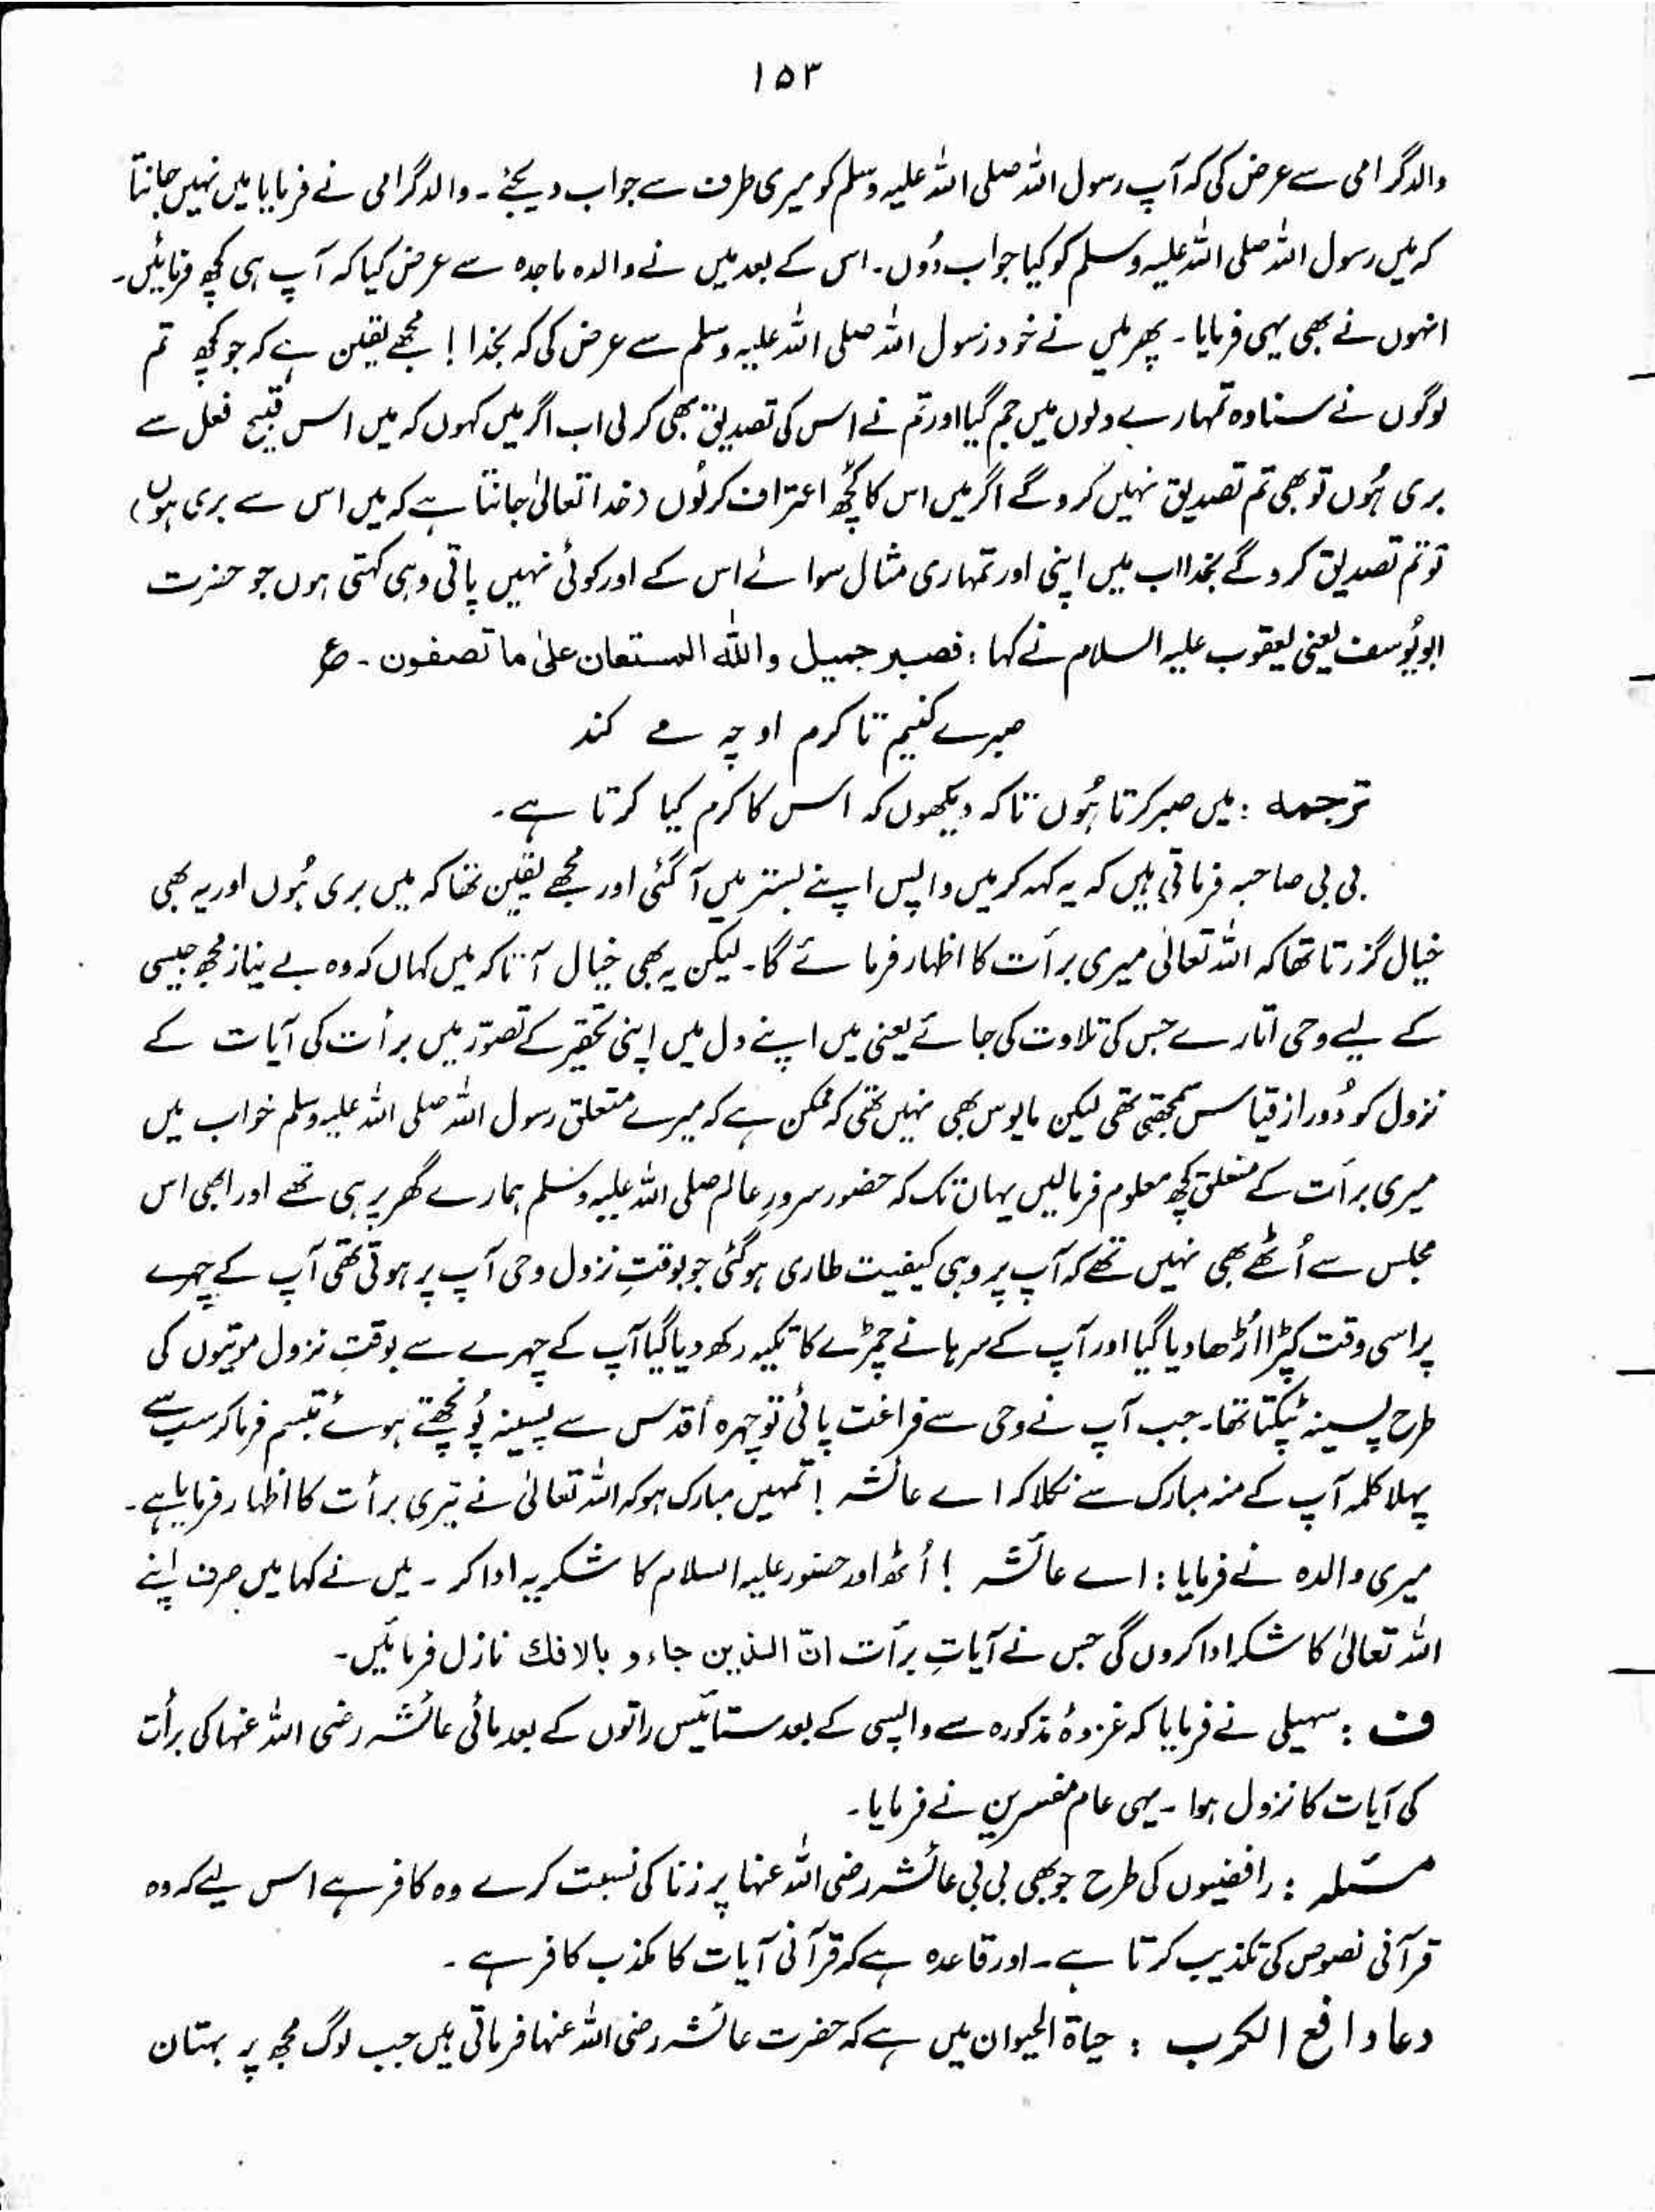 ۱۵۳
والد گرامی سے عرض کی کہ آپ رسول اللہ صلی اللہ علیہ وسلم کو میری طرف سے جواب دیجئے۔ والد گرامی نے فرمایا میں نہیں جانتا
کہ میں رسول اللہ صلی اللہ علیہ وسلم کو کیا جواب دُوں۔ اس کے بعد میں نے والدہ ماجدہ سے عرض کیا کہ آپ ہی کچھ فرمائیں۔
انہوں نے بھی یہی فرمایا۔ پھر میں نے خود رسول اللہ صلی اللہ علیہ وسلم سے عرض کی کہ بخدا! مجھے یقین ہے کہ جو کچھ تم
لوگوں نے سنا وہ تمہارے دلوں میں جم گیا اور تم نے اس کی تصدیق بھی کر لی اب اگر میں کہوں کہ میں اس قبیح فعل سے
بری ہُوں تو بھی تم تصدیق نہیں کرو گے اگر میں اس کا کچھ اعتراف کر لُوں (خدا تعالیٰ جانتا ہے کہ میں اس سے بری ہوں)
تو تم تصدیق کرو گے بخدا اب میں اپنی اور تمہاری مثال سوائے اس کے اور کوئی نہیں پاتی وہی کہتی ہوں جو حضرت
ابو یُوسف یعنی یعقوب علیہ السلام نے کہا : فصبر جمیل واللہ المستعان علیٰ ما تصفون۔ ع
صبرے کنیم تا کرم او چہ مے کند
ترجمہ : میں صبر کرتا ہُوں تاکہ دیکھوں کہ اس کا کرم کیا کرتا ہے۔
بی بی صاحبہ فرماتی ہیں کہ یہ کہہ کر میں واپس اپنے بستر میں آ گئی اور مجھے یقین تھا کہ میں بری ہُوں اور یہ بھی
خیال گزرتا تھا کہ اللہ تعالیٰ میری برأت کا اظہار فرمائے گا۔ لیکن یہ بھی خیال آتا کہ میں کہاں کہ وہ بے نیاز مجھ جیسی
کے لیے وحی اتارے جس کی تلاوت کی جائے یعنی میں اپنے دل میں اپنی تحقیر کے تصوّر میں برأت کی آیات کے
نزول کو دُور از قیاس سمجھتی تھی لیکن مایوس بھی نہیں تھی کہ ممکن ہے کہ میرے متعلق رسول اللہ صلی اللہ علیہ وسلم خواب میں
میری برأت کے متعلق کچھ معلوم فرما لیں یہاں تک کہ حضور سرورِ عالم صلی اللہ علیہ وسلم ہمارے گھر پر ہی تھے اور ابھی اس
مجلس سے اُٹھے بھی نہیں تھے کہ آپ پر وہی کیفیت طاری ہو گئی جو بوقتِ نزول وحی آپ پر ہوتی تھی آپ کے چہرے
پر اسی وقت کپڑا اُڑھا دیا گیا اور آپ کے سرہانے چمڑے کا تکیہ رکھ دیا گیا آپ کے چہرے سے بوقتِ نزول موتیوں کی
طرح پسینہ ٹپکتا تھا۔ جب آپ نے وحی سے فراغت پائی تو چہرہ اقدس سے پسینہ پُونچھتے ہوئے تبسم فرما کر سب سے
پہلا کلمہ آپ کے منہ مبارک سے نکلا کہ اے عائشہ! تمہیں مبارک ہو کہ اللہ تعالیٰ نے تیری برأت کا اظہار فرمایا ہے۔
میری والدہ نے فرمایا : اے عائشہ! اُٹھ اور حضور علیہ السلام کا شکریہ ادا کر۔ میں نے کہا میں صرف اپنے
اللہ تعالیٰ کا شکر ادا کروں گی جس نے آیاتِ برأت انّ الذین جاءو بالافك نازل فرمائیں۔
ف : سہیلی نے فرمایا کہ غزوۂ مذکورہ سے واپسی کے بعد ستائیس راتوں کے بعد مائی عائشہ رضی اللہ عنہا کی برأت
کی آیات کا نزول ہوا۔ یہی عام مفسرین نے فرمایا۔
مسئلہ : رافضیوں کی طرح جو بھی بی بی عائشہ رضی اللہ عنہا پر زنا کی نسبت کرے وہ کافر ہے اس لیے کہ وہ
قرآنی نصوص کی تکذیب کرتا ہے۔ اور قاعدہ ہے کہ قرآنی آیات کا مکذب کافر ہے۔
دعا دافع الکرب : حیاۃ الحیوان میں ہے کہ حضرت عائشہ رضی اللہ عنہا فرماتی ہیں جب لوگ مجھ پر بہتان